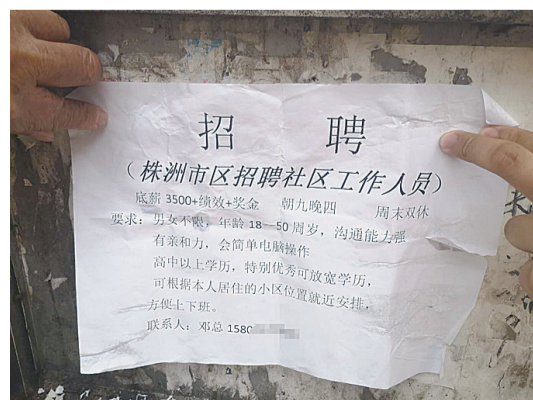 招 聘
（株洲市区招聘社区工作人员）
底薪 3500+绩效+奖金 朝九晚四 周末双休
要求：男女不限，年龄 18—50 周岁，沟通能力强
有亲和力，会简单电脑操作
高中以上学历，特别优秀可放宽学历，
可根据本人居住的小区位置就近安排，
方便上下班。
联系人：邓总 1580